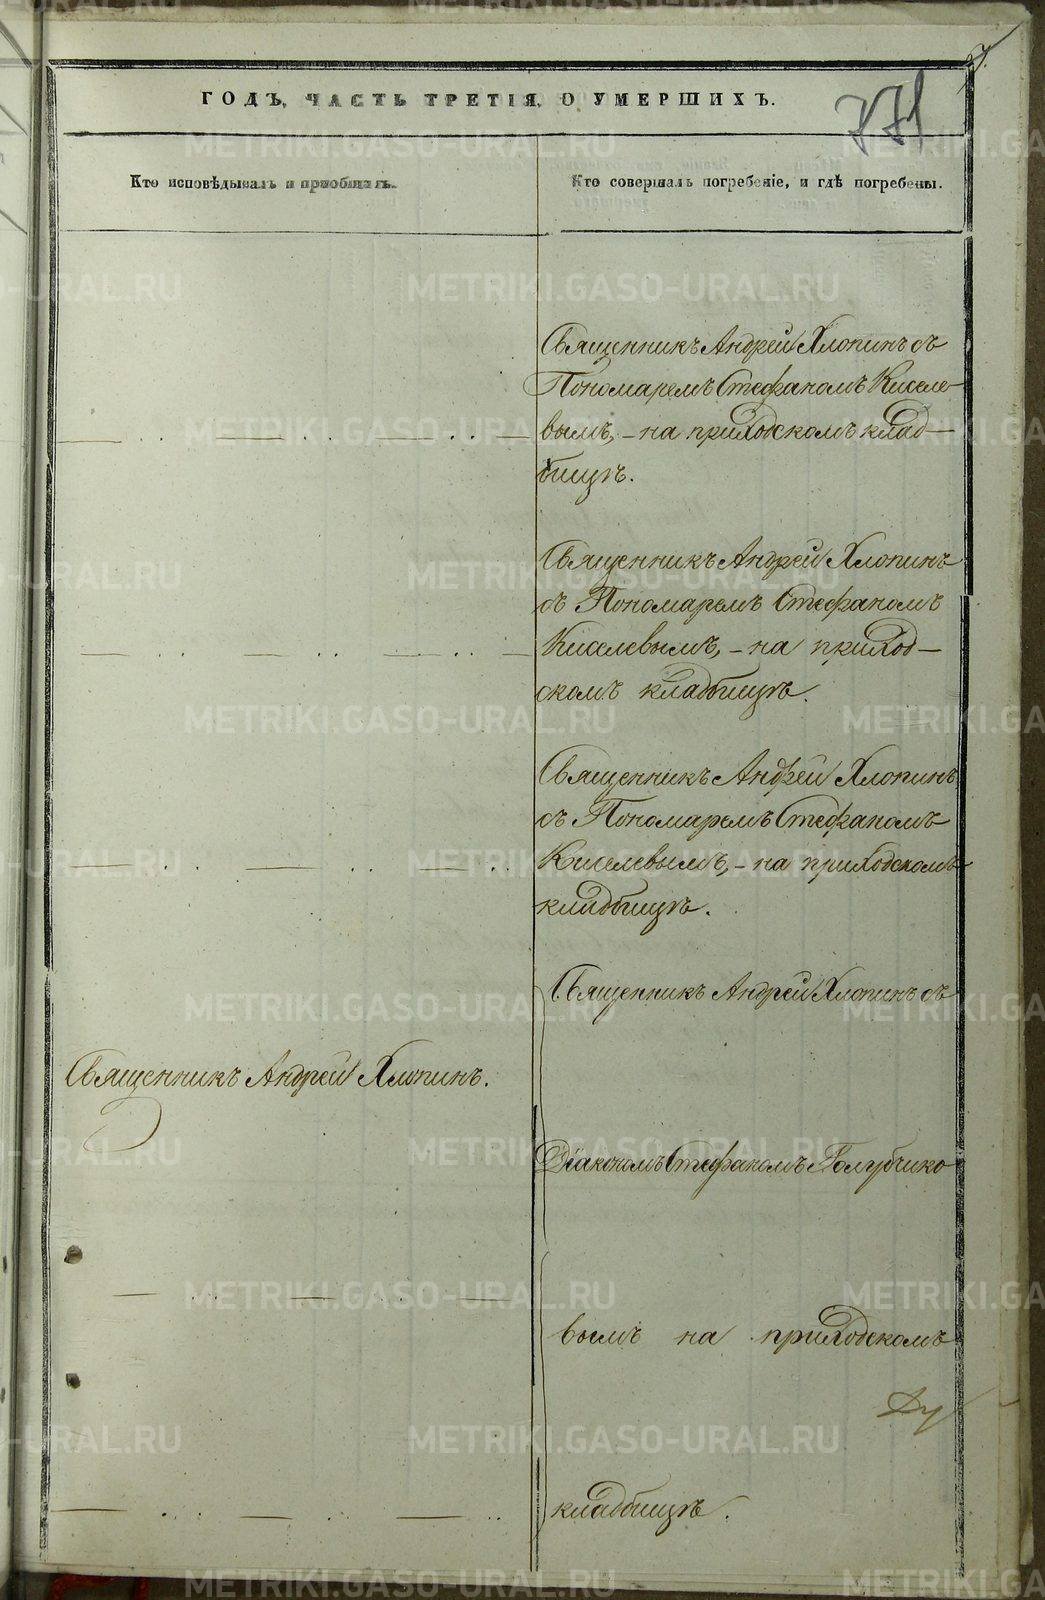 ГОДЪ, ЧАСТЬ ТРЕТІЯ, О УМЕРШИХЪ.
771
Кто исповѣдывалъ и пріобщалъ.
Кто совершалъ погребеніе, и гдѣ погребены.
Священникъ Андрей Хлопинъ съ
Пономаремъ Стефаномъ Киселе-
вымъ, - на приходскомъ клад-
бищѣ.
Священникъ Андрей Хлопинъ
съ Пономаремъ Стефаномъ
Киселевымъ, - на приход-
скомъ кладбищѣ.
Священникъ Андрей Хлопинъ
съ Пономаремъ Стефаномъ
Киселевымъ, - на приходскомъ
кладбищѣ.
Священникъ Андрей Хлопинъ.
Священникъ Андрей Хлопинъ съ
Діакономъ Стефаномъ Голубчико
вымъ на приходскомъ
кладбищѣ.
METRIKI.GASO-URAL.RU